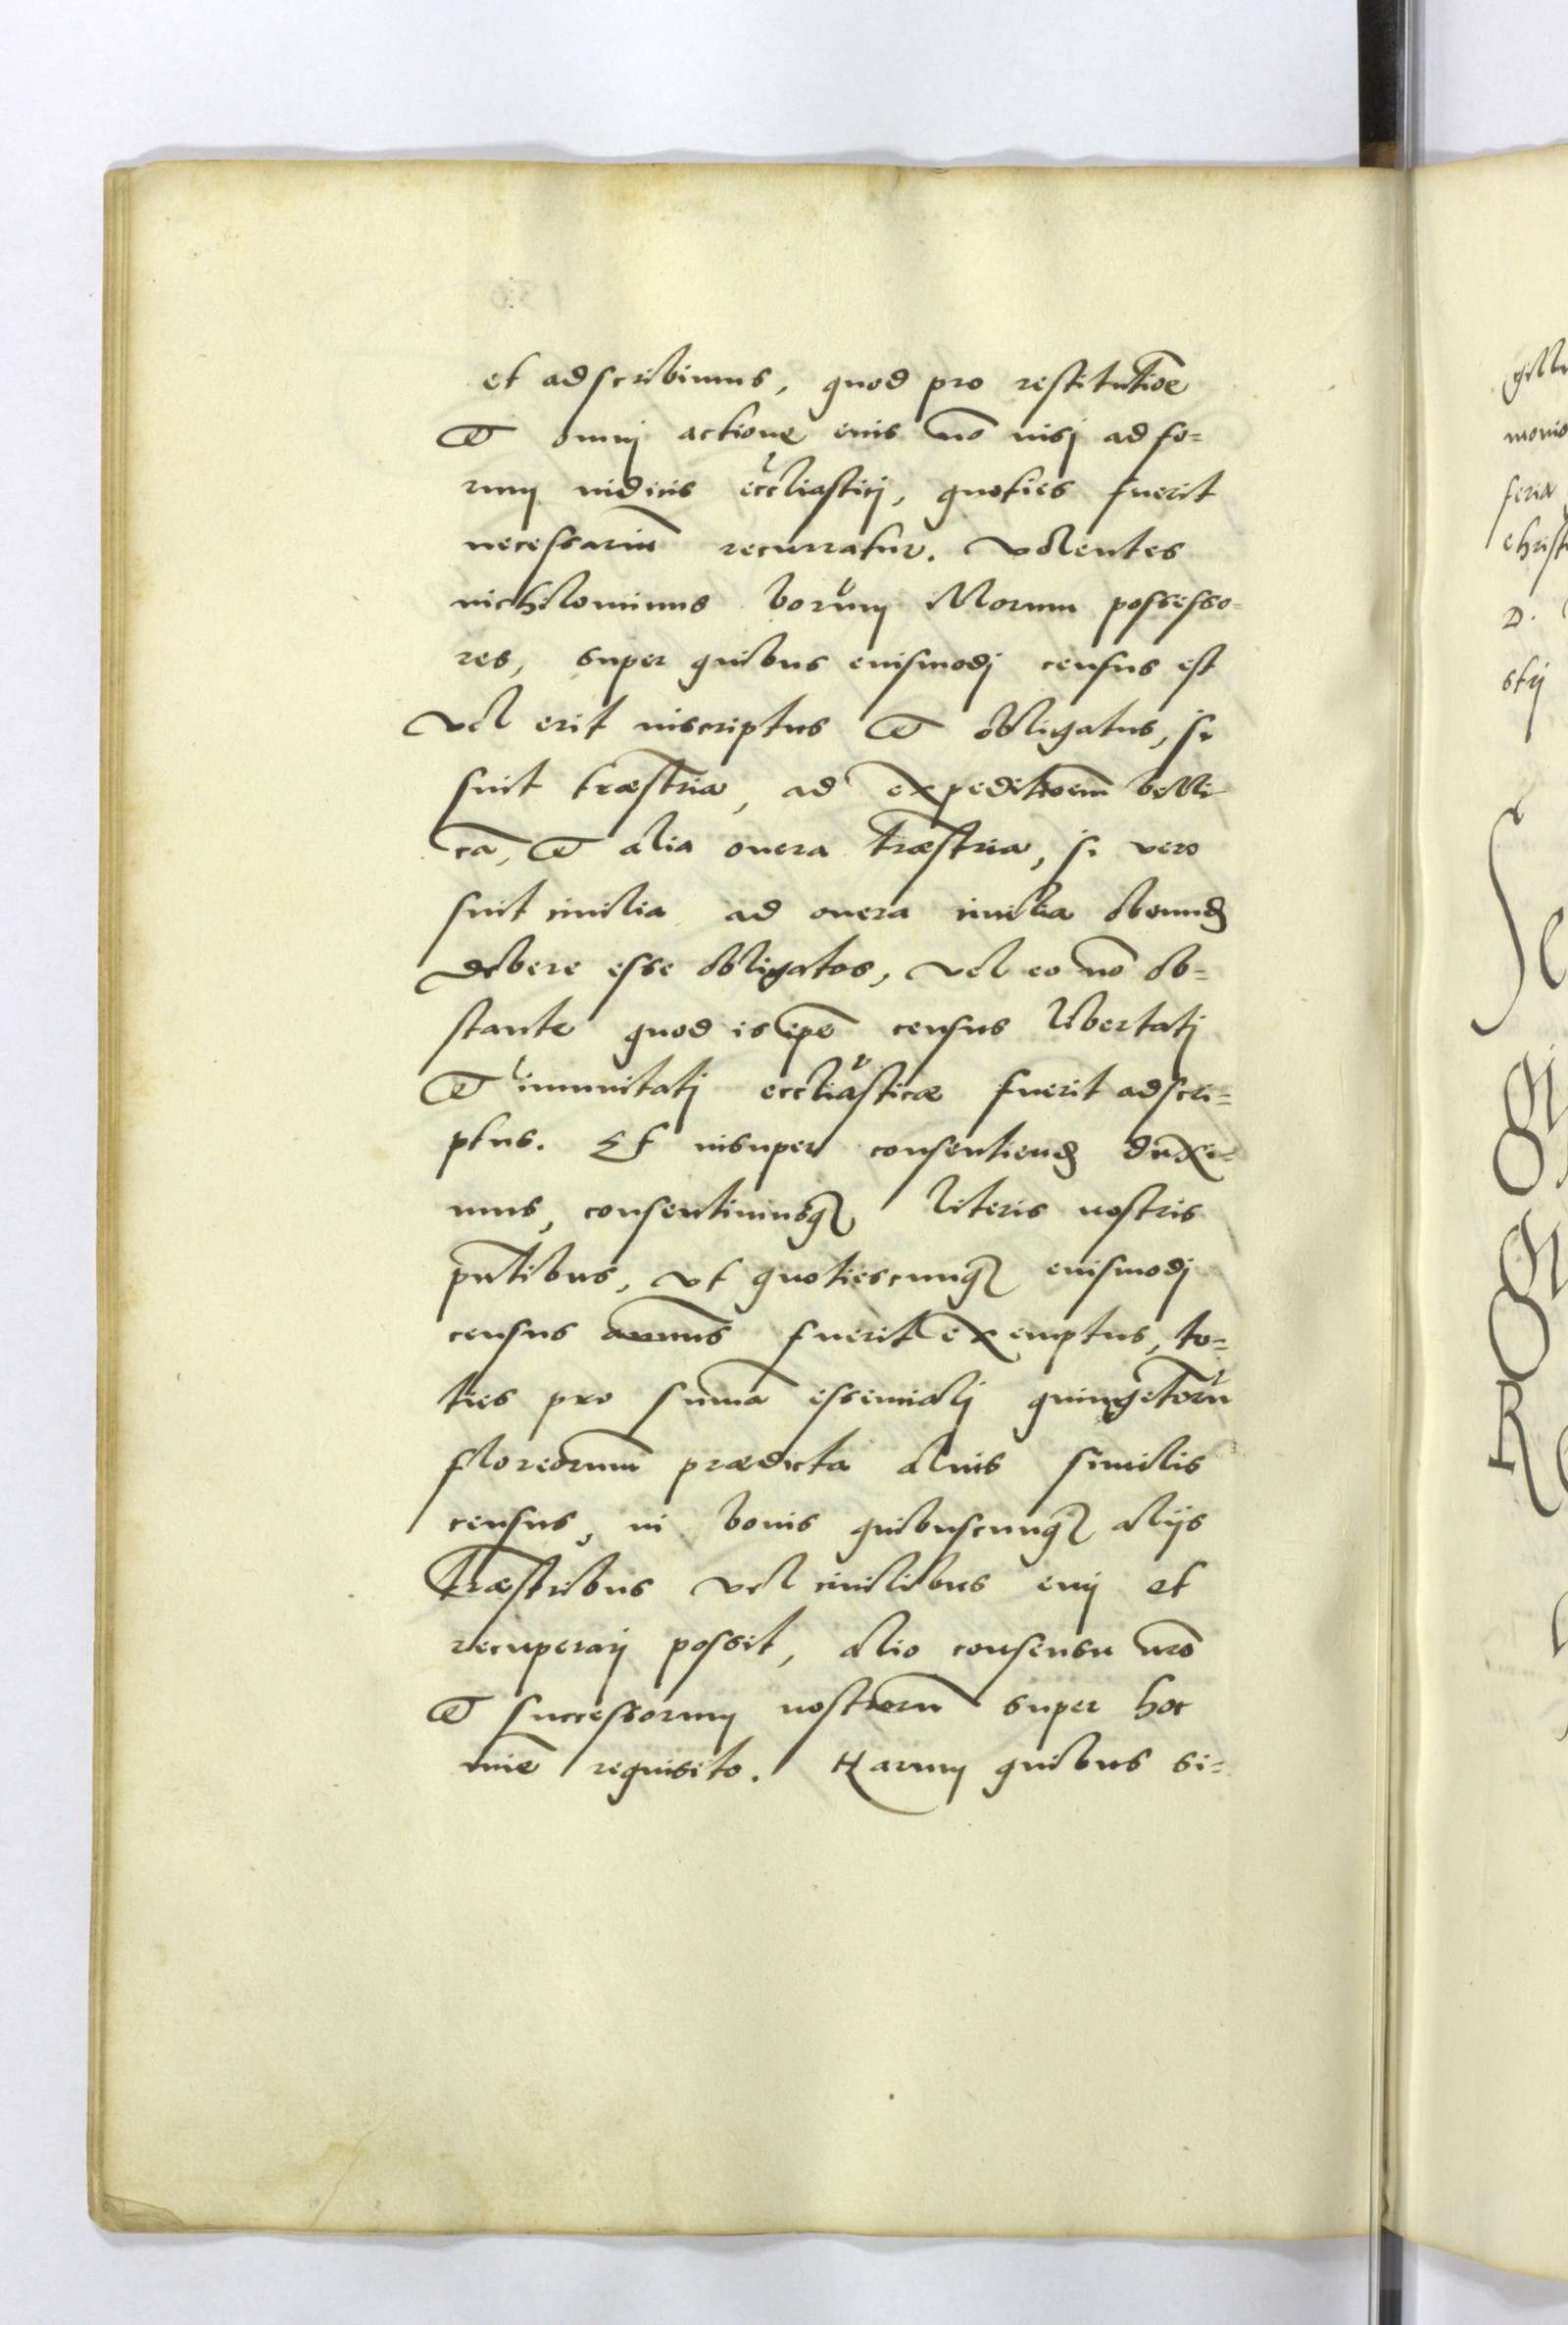 et adscribimus, quod pro restitutiõe
& omnj actione eius nõ nisj ad fo=
rum iudicis eccl̃iasticj, quoties fuerit
necessariũ recurratur. Volentes
nichilominus bonorum illorum possesso=
res, super quibus eiusmodj census est
vel erit inscriptus & obligatus, si
sint træstria, ad expeditioem̃ belli
cã, & alia onera træstria, si vero
sint ciuilia ad onera ciuilia obeund
debere esse obligatos, vel eo nõ ob=
stante quod is ip̃e census libertatj
& imunitatj eccl̃iasticæ fuerit adscri=
ptus. Et insuper consentiend duxi=
mus, consentimusq literis nostris
pñtibus, vt quotiescunq eiusmodj
census annuus fuerit exemptus, to=
ties pro sum̃a essencialj quingẽtorũ
florenorum̃ prædicta alius similis
census, in bonis quibuscunq alijs
træstribus vel ciuilibus emj et
recuperarj possit, alio consensu nr̃o
& successorum nostrorũ super hoc
mĩe requisito. Harum quibus si=
gilli
monio
feria
christ
D.
stij
Se